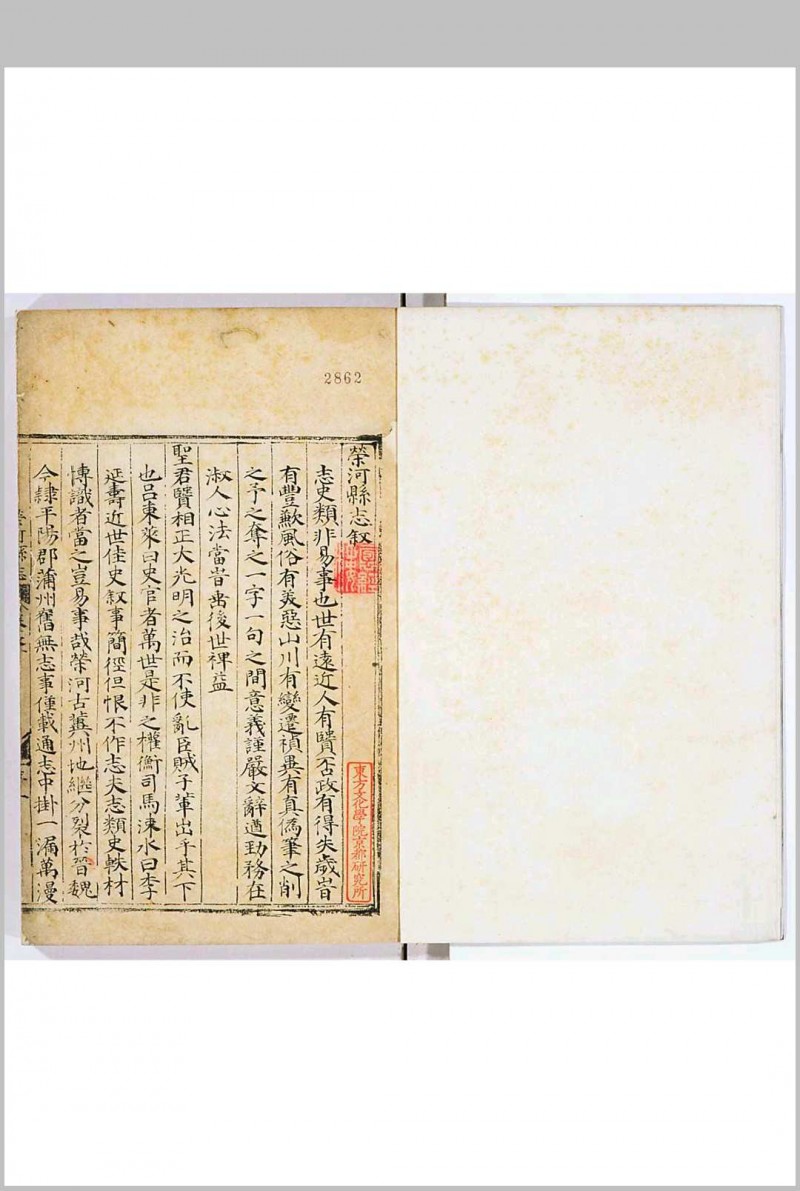 2862
榮河縣志叙
志史類非易事也世有遠近人有賢否政有得失歲旹
有豐歉風俗有美惡山川有變遷禎異有真僞筆之削
之予之奪之一字一句之間意義謹嚴文辭遒勁務在
淑人心法當旹垂後世裨益
聖君賢相正大光明之治而不使亂臣賊子軰出乎其下
也呂東萊曰史官者萬世是非之權衡司馬涑水曰李
延壽近世佳史叙事簡徑但恨不作志夫志類史軼材
博識者當之豈易事哉榮河古冀州地繼分裂於晉魏
今隸平陽郡蒲州舊無志事僅載通志中掛一漏萬漫
榮河縣志
東方文化學院京都研究所